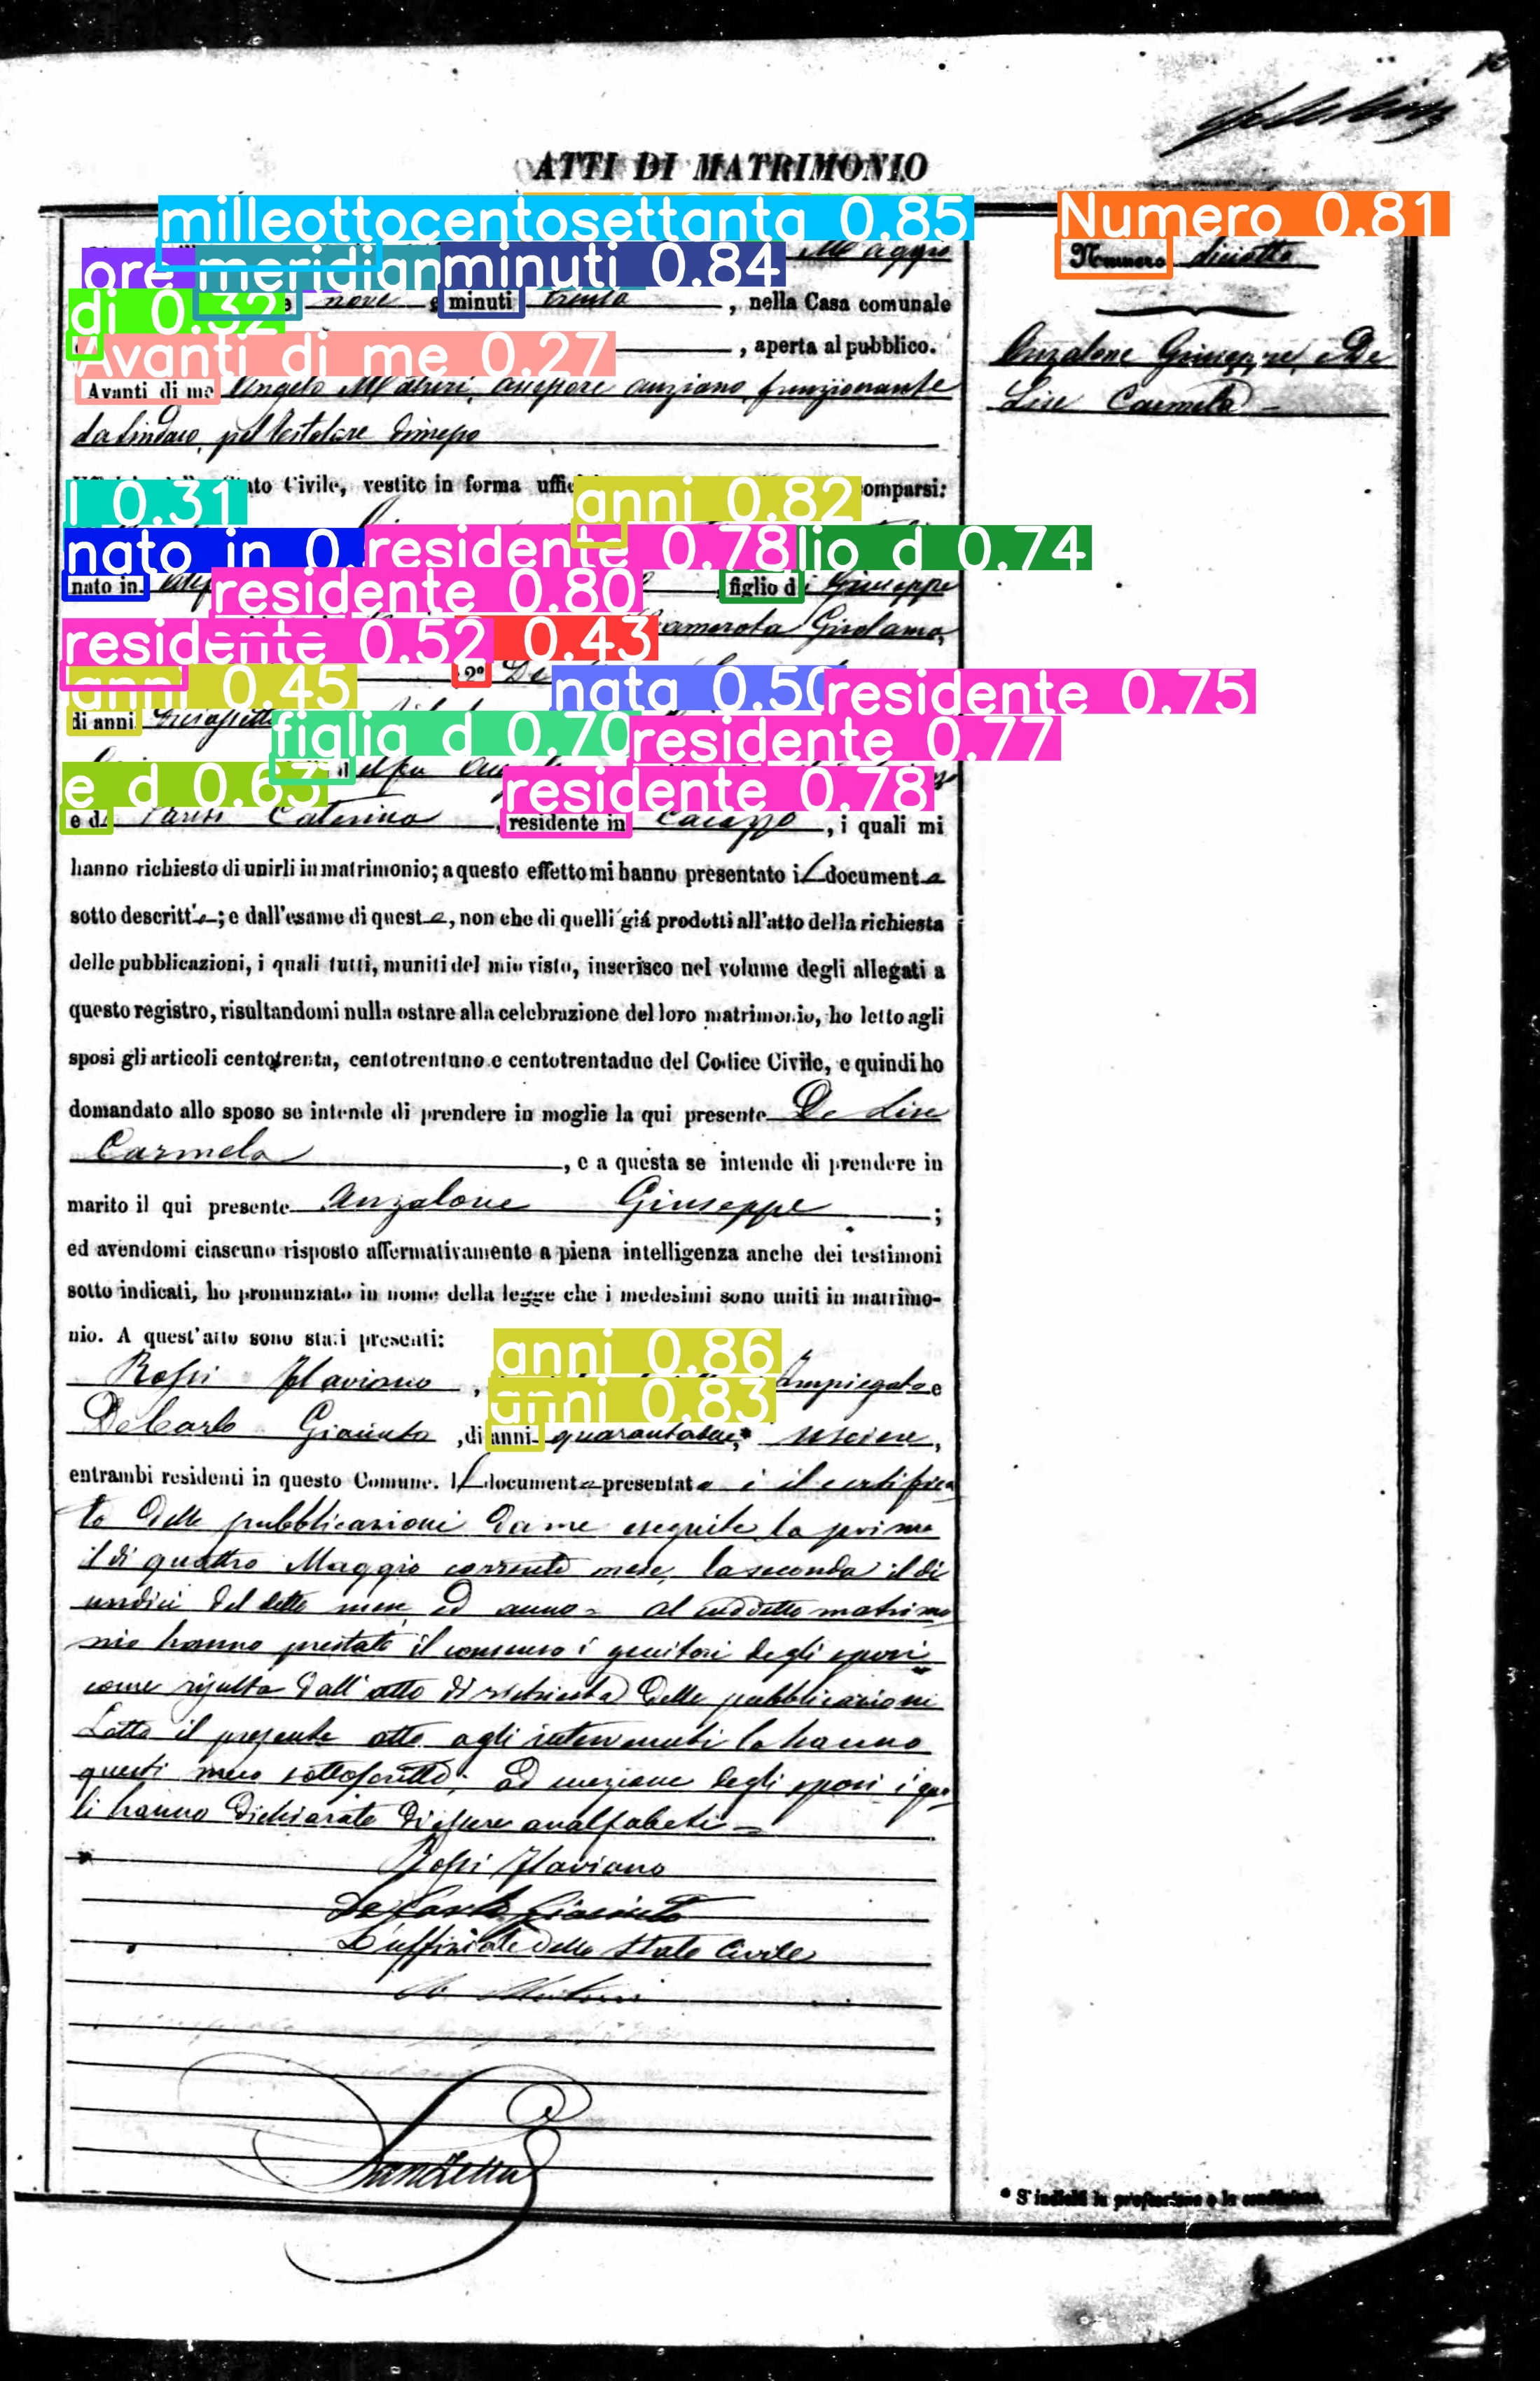 ATTI DI MATRIMONIO
milleottocentosettanta 0.85
Numero 0.81
Maggio
Numero diciotto
ore meridian minuti 0.84
di 0.32
nove e minuti trenta , nella Casa comunale
Avanti di me 0.27
, aperta al pubblico.
Anzalone Giuseppe, e De
Lise Carmela
Avanti di me Angelo funzionante
da Sindaco
Stato Civile, vestito in forma comparsi:
l 0.31
anni 0.82
nato in 0. residente 0.78 lio d 0.74
nato in figlio d Giuseppe
residente 0.80
Girolama,
residente 0.52 0.43
2° De
anni 0.45 nata 0.50 residente 0.75
di anni
figlia d 0.70 residente 0.77
e d 0.63 residente 0.78
e di Caterina , residente in , i quali mi
hanno richiesto di unirli in matrimonio; a questo effetto mi hanno presentato il document
sotto descritt ; e dall'esame di quest , non che di quelli già prodotti all'atto della richiesta
delle pubblicazioni, i quali tutti, muniti del mio visto, inserisco nel volume degli allegati a
questo registro, risultandomi nulla ostare alla celebrazione del loro matrimonio, ho letto agli
sposi gli articoli centotrenta, centotrentuno e centotrentadue del Codice Civile, e quindi ho
domandato allo sposo se intende di prendere in moglie la qui presente De Lise
Carmela , e a questa se intende di prendere in
marito il qui presente Anzalone Giuseppe ;
ed avendomi ciascuno risposto affermativamente a piena intelligenza anche dei testimoni
sotto indicati, ho pronunziato in nome della legge che i medesimi sono uniti in matrimo-
nio. A quest'atto sono stati presenti:
anni 0.86
Rossi Flaviano , Impiegato e
anni 0.83
De Carlo Giacinto , di anni * usciere,
entrambi residenti in questo Comune. Il document presentat è il certifica
to delle pubblicazioni da me eseguite la prima
il di quattro Maggio corrente mese, la seconda il di
undici del detto mese ed anno = Al suddetto matrimo
nio hanno prestato il consenso i genitori degli sposi
come risulta dall'atto di richiesta delle pubblicazioni
Letto il presente atto agli intervenuti lo hanno
questi meco sottoscritto, ad eccezione degli sposi i qua
li hanno dichiarato di essere analfabeti =
Rossi Flaviano
De Carlo Giacinto
L'uffiziale dello Stato Civile
* S'indichi la professione o la condizione.